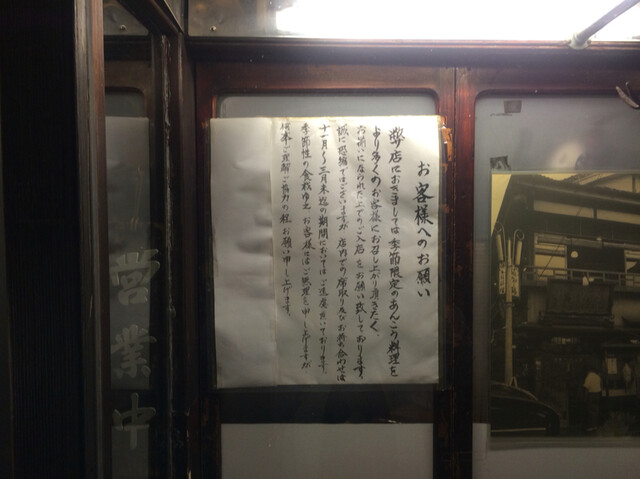 お客様へのお願い
弊店におきましては季節限定のあんこう料理を
より多くのお客様にお召し上がり頂きたく、
お揃いになられた上でのご入店をお願い致しております。
誠に恐縮ではございますが店内での席取り及びお待ち合わせは
十一月〜三月末迄の期間においてはご遠慮頂いております。
季節性の食材ゆえ、お客様にはご無理を申し上げますが
何卒ご理解ご協力の程お願い申し上げます。
営業中